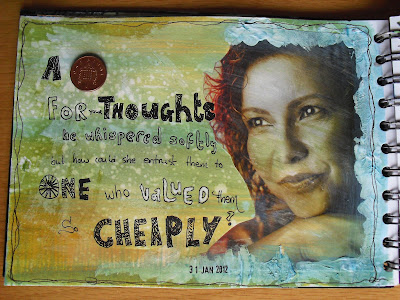 A
FOR-THOUGHTS
he whispered softly
but how could she entrust them to
ONE who VALUED them
so CHEAPLY?
31 JAN 2012